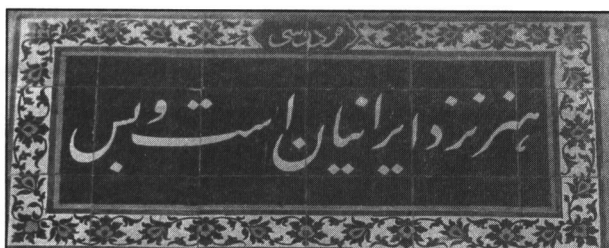 فردوسی
هنر نزد ایرانیان است و بس